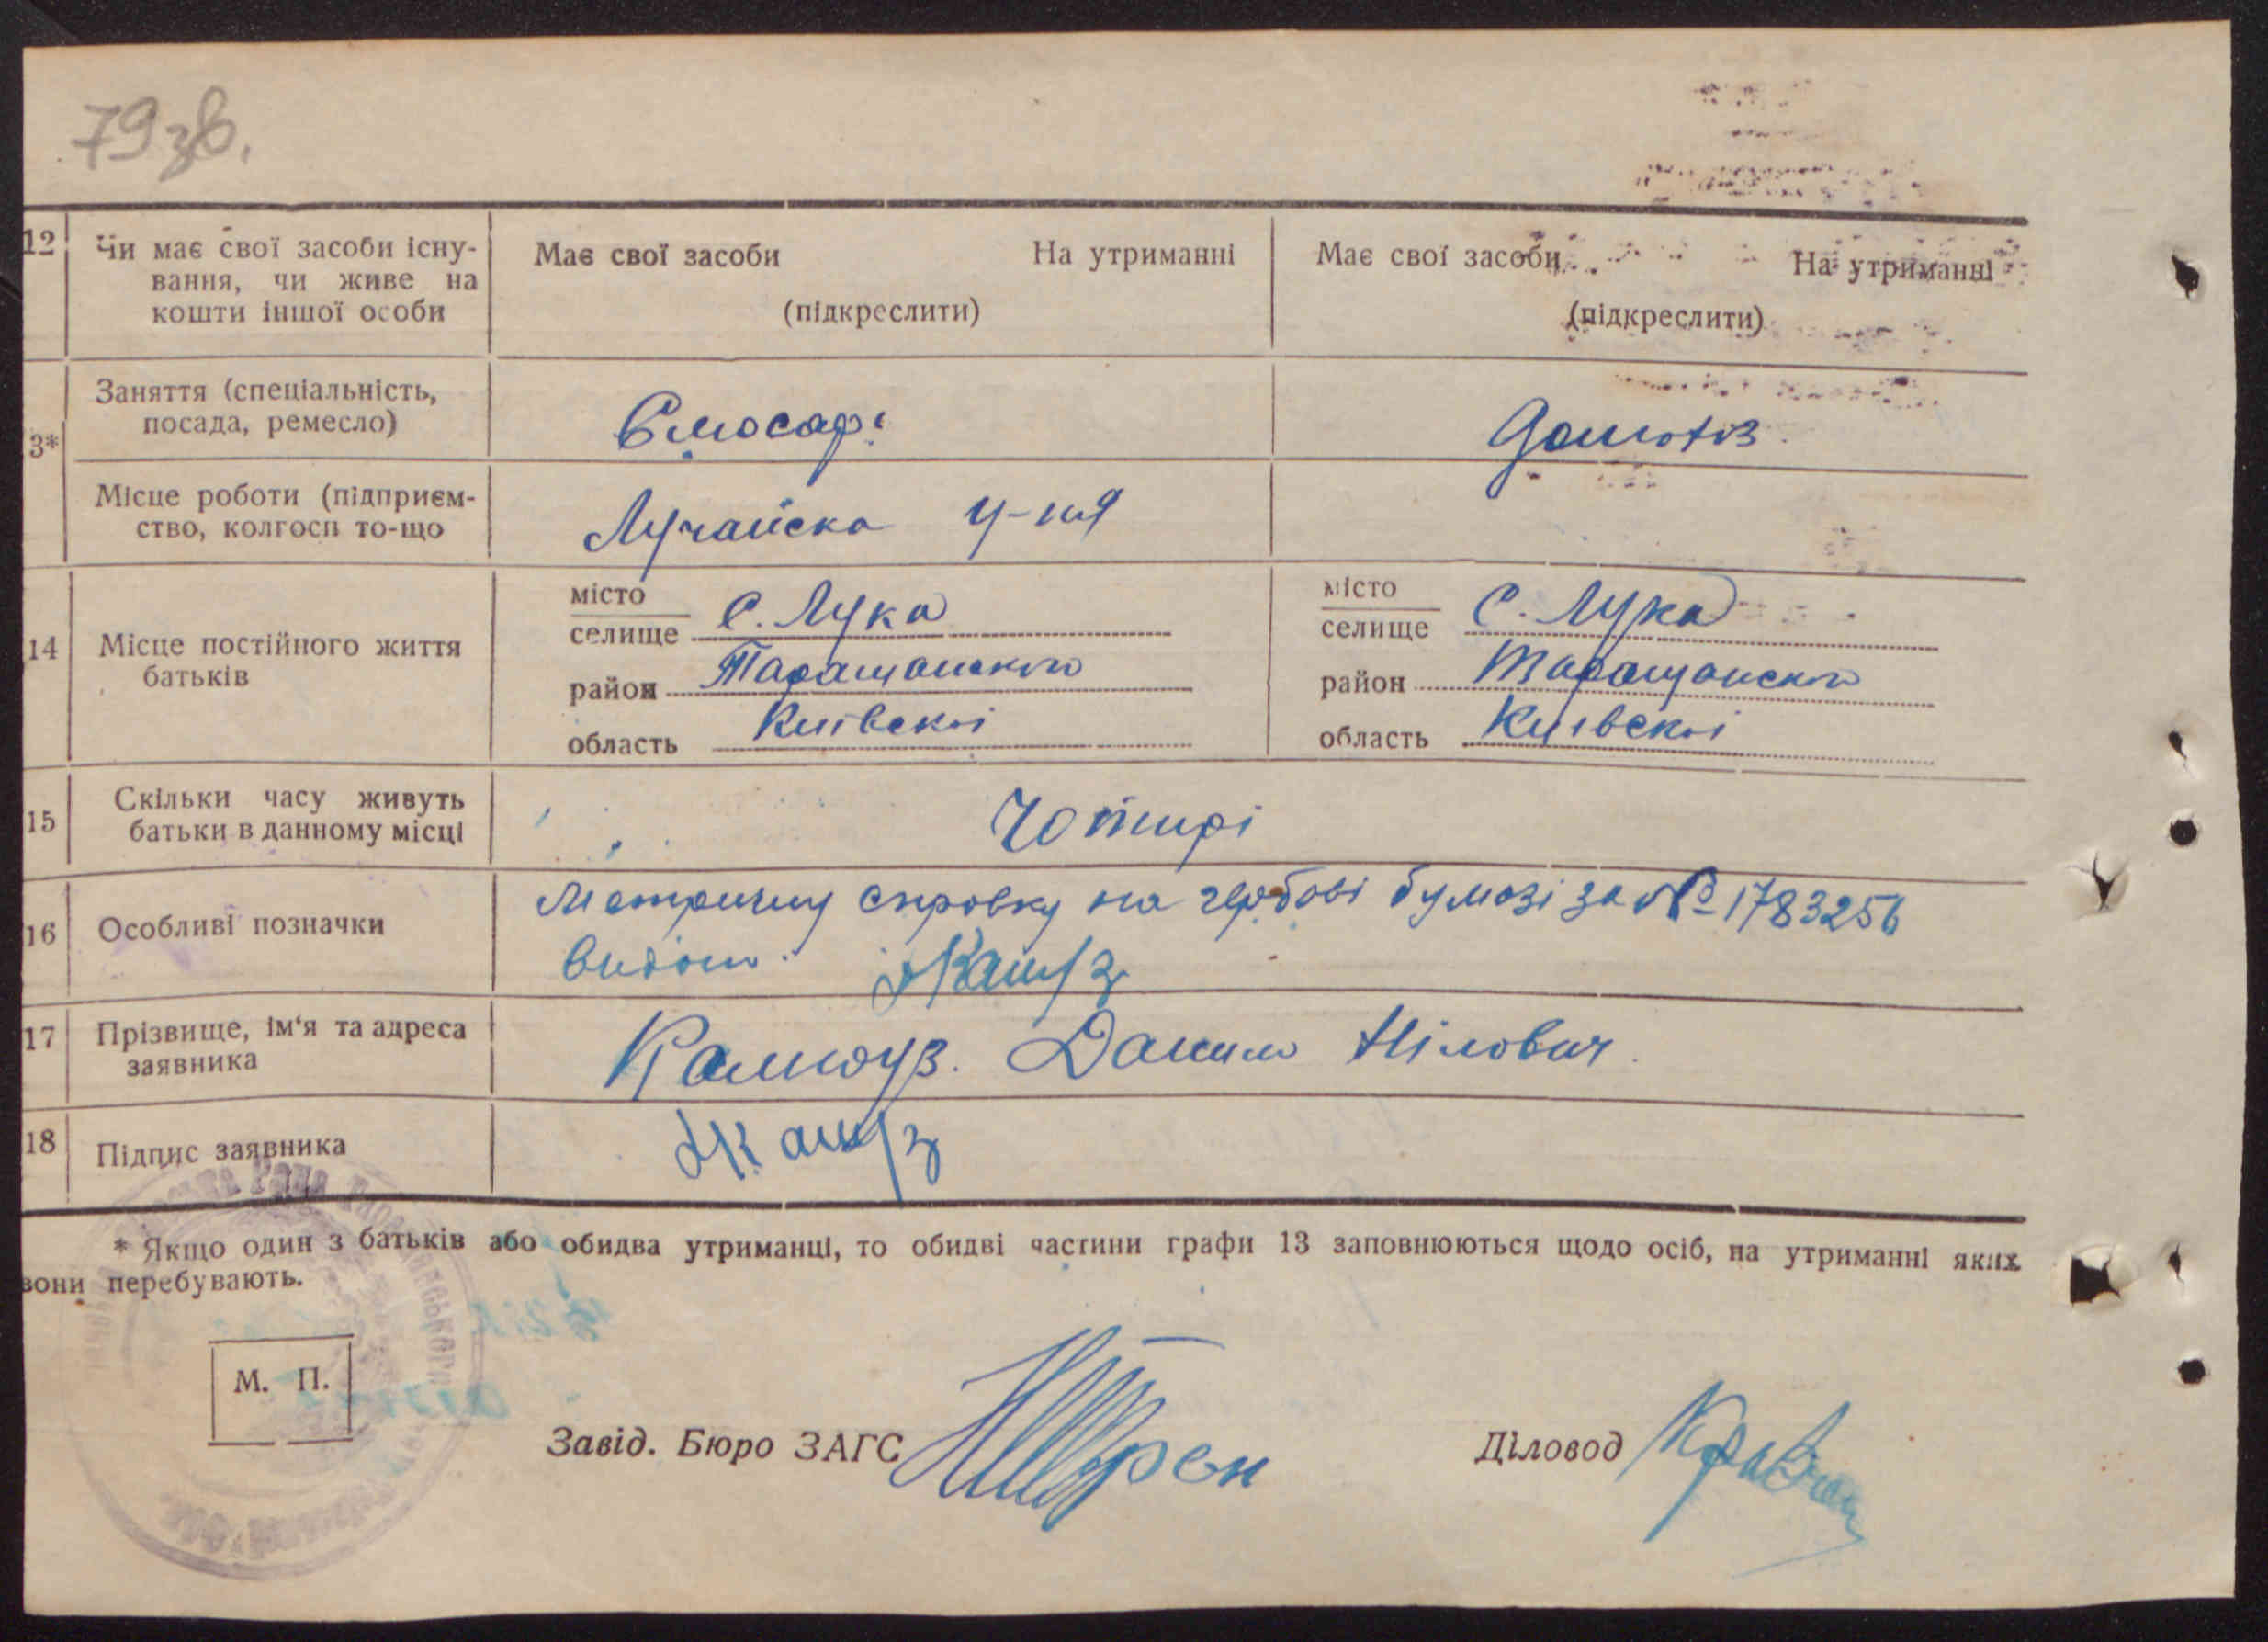 79 зв.
12
Чи має свої засоби існу-
вання, чи живе на
кошти іншої особи
Має свої засоби На утриманні
(підкреслити)
Має свої засоби На утриманні
(підкреслити)
3*
Заняття (спеціальність,
посада, ремесло)
Слюсар.
Домогоз.
Місце роботи (підприєм-
ство, колгосп то-що
Лучанска
14
Місце постійного життя
батьків
місто
селище С. Лука
район Таращанского
область Київскоі
місто
селище С. Лука
район Таращанского
область Київскоі
15
Скільки часу живуть
батьки в данному місці
Чотирі
16
Особливі позначки
Метричну справку на гербові бумозі за № 1783256
видали.
17
Прізвище, ім'я та адреса
заявника
Данило Нілович.
18
Підпис заявника
* Якщо один з батьків або обидва утриманці, то обидві частини графи 13 заповнюються щодо осіб, на утриманні яких
вони перебувають.
М. П.
Завід. Бюро ЗАГС
Діловод